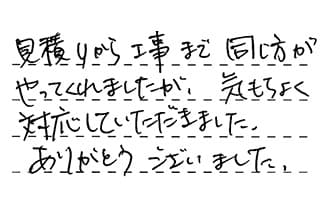 見積りから工事まで同じ方が
やってくれましたが、気もちよく
対応していただきました。
ありがとうございました。